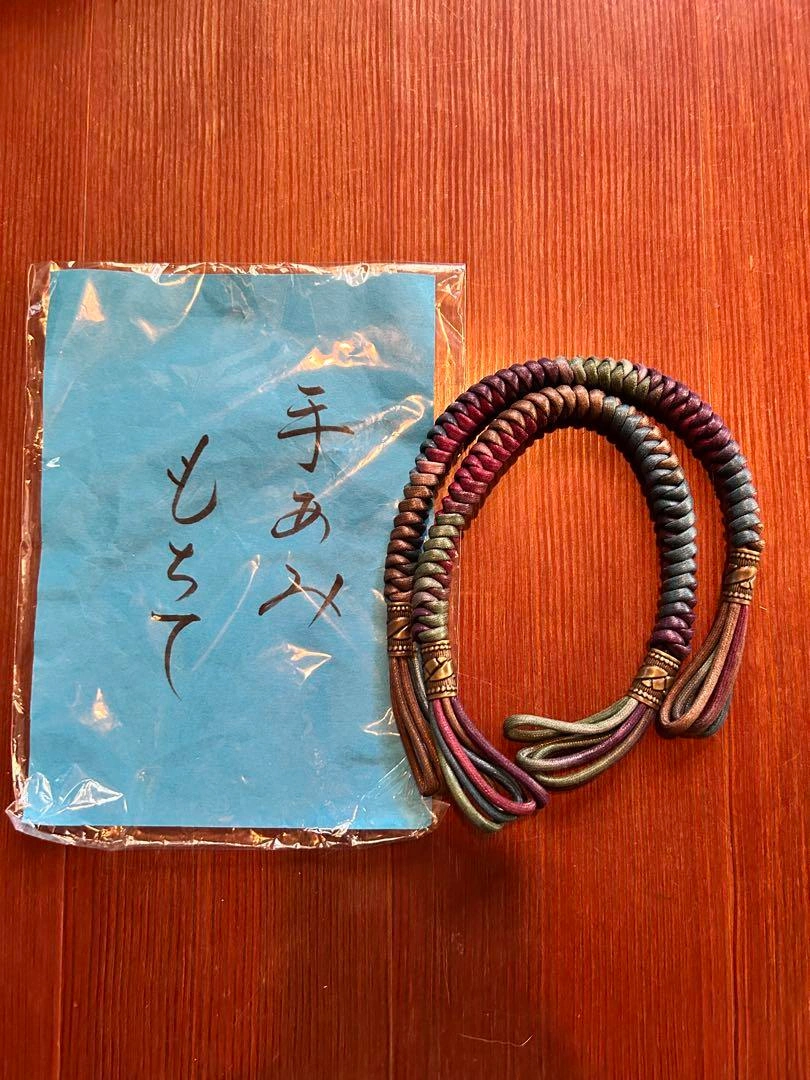 手あみ
もちて